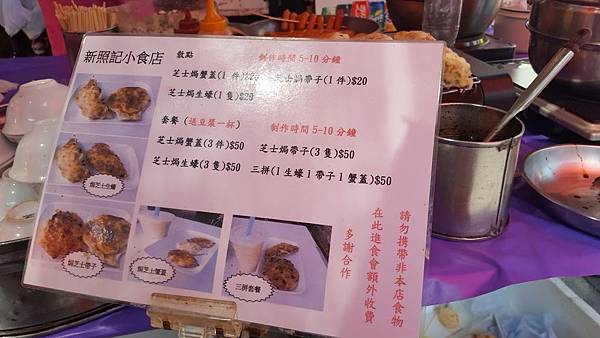 新照記小食店
散點 制作時間 5-10分鐘
芝士焗蟹蓋(1件)$20 芝士焗帶子(1件)$20
芝士焗生蠔(1隻)$20
套餐(送豆漿一杯) 制作時間 5-10分鐘
芝士焗蟹蓋(3件)$50 芝士焗帶子(3隻)$50
芝士焗生蠔(3隻)$50 三拼(1生蠔1帶子1蟹蓋)$50
焗芝士生蠔
焗芝士帶子
焗芝士蟹蓋
三拼套餐
請勿攜帶非本店食物
在此進食會額外收費
多謝合作